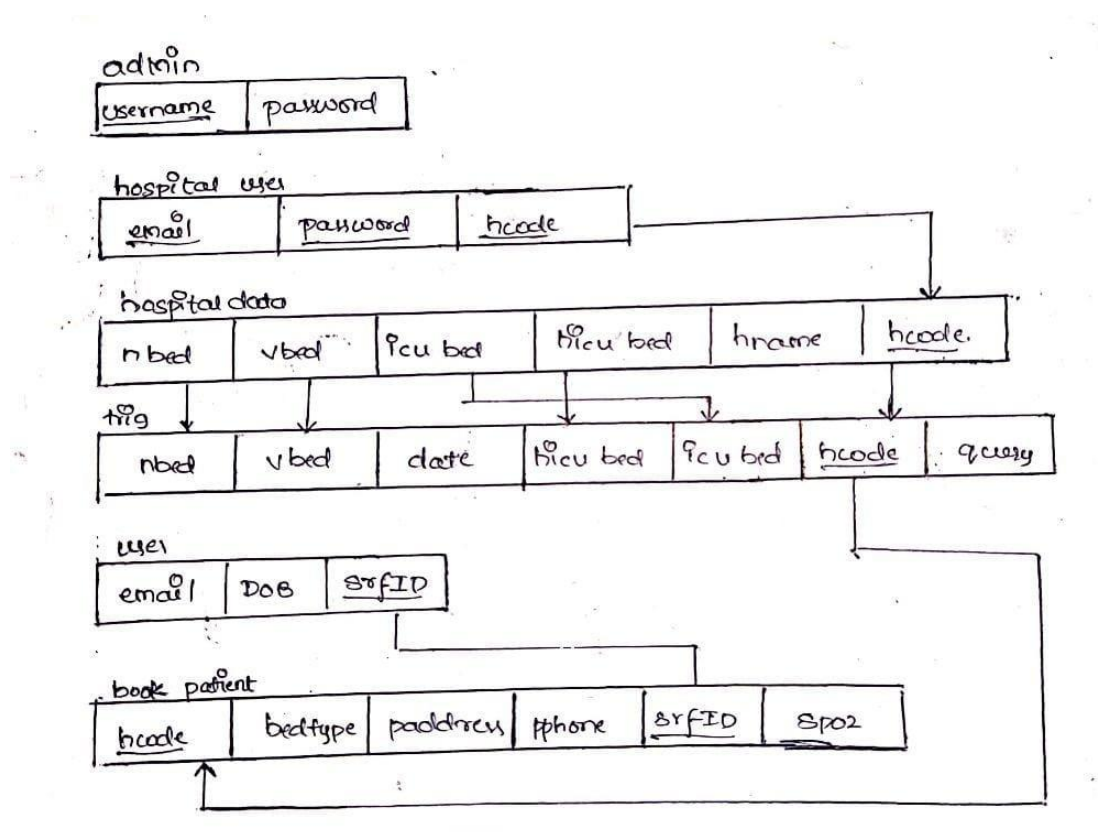 admin
username password
hospital user
email password hcode
hospital data
nbed vbed icu bed hicu bed hname hcode.
trig
nbed vbed date hicu bed icu bed hcode query
user
email DOB srfID
book patient
hcode bedtype paddress pphone srfID spo2